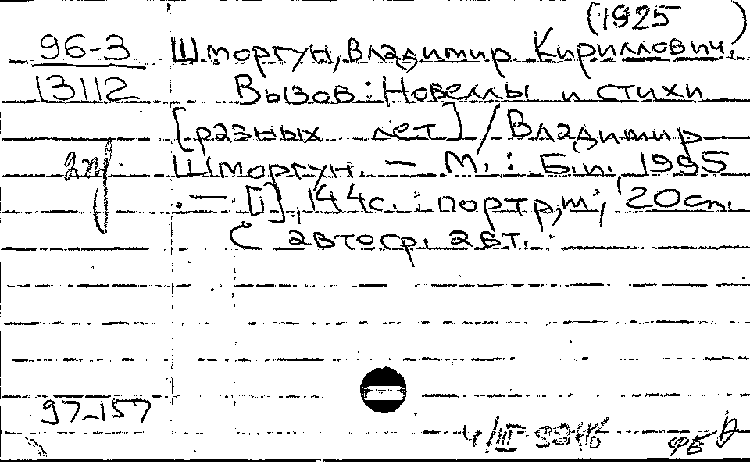 (1925
96-3 Шморгун, Владимир Кириллович. )
13112 Вызов: Новеллы и стихи
[разных лет] / Владимир
Шморгун. — М.: Б.и. 1995
. — [1], 144с.: портр, ; 20см.
С автогр. авт.
97-157
ФБ